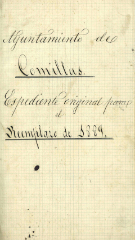 Ayuntamiento de
Comillas.
Expediente original para
el
Reemplazo de 1889.